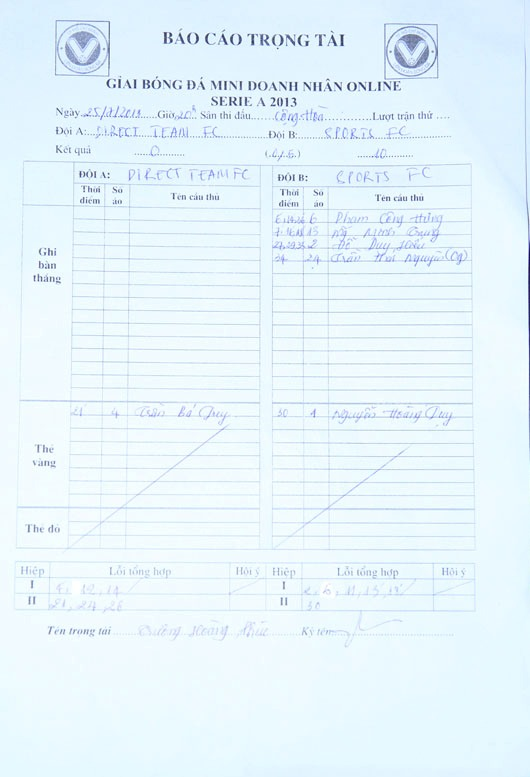 BÁO CÁO TRỌNG TÀI
GIẢI BÓNG ĐÁ MINI DOANH NHÂN ONLINE
SERIE A 2013
Ngày 25/7/2013 Giờ 20h Sân thi đấu Cộng Hòa Lượt trận thứ ....
Đội A: DIRECT TEAM FC Đội B: SPORTS FC
Kết quả 0 10
ĐỘI A: DIRECT TEAM FC ĐỘI B: SPORTS FC
Thời điểm Số áo Tên cầu thủ Thời điểm Số áo Tên cầu thủ
Ghi bàn thắng
6 Phạm Công Hưng
13 Minh Trung
2 Đỗ Duy
34 24 Trần Nguyên (Og)
Thẻ vàng
21 4 Trần Bá Duy 30 1 Nguyễn Hoàng Duy
Thẻ đỏ
Hiệp Lỗi tổng hợp Hội ý Hiệp Lỗi tổng hợp Hội ý
I I
II 21, 24, 26 II 30
Tên trọng tài Hoàng Ký tên